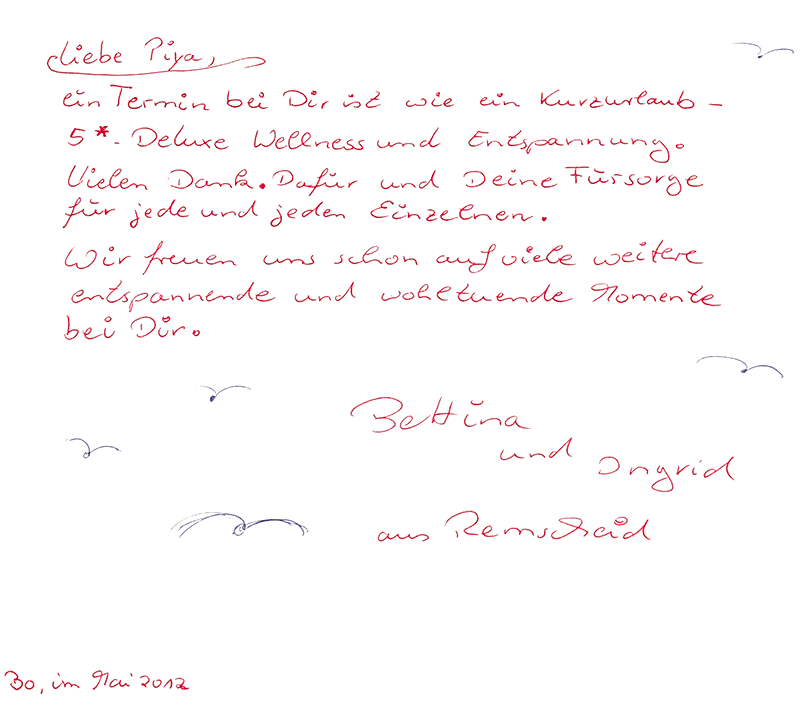 Liebe Piya,
ein Termin bei Dir ist wie ein Kurzurlaub -
5*- Deluxe Wellness und Entspannung.
Vielen Dank. Dafür und Deine Fürsorge
für jede und jeden Einzelnen.
Wir freuen uns schon auf viele weitere
entspannende und wohltuende Momente
bei Dir.
Bettina
und Ingrid
aus Remscheid
Bo, im Mai 2012